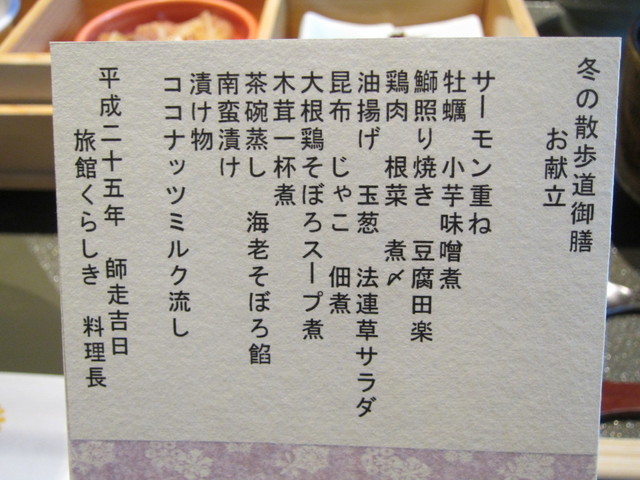 冬の散歩道御膳
お献立
サーモン重ね
牡蠣　小芋味噌煮
鰤照り焼き　豆腐田楽
鶏肉　根菜　煮〆
油揚げ　玉葱　法連草サラダ
昆布　じゃこ　佃煮
大根鶏そぼろスープ煮
木茸一杯煮
茶碗蒸し　海老そぼろ餡
南蛮漬け
漬け物
ココナッツミルク流し
平成二十五年　師走吉日
旅館くらしき　料理長